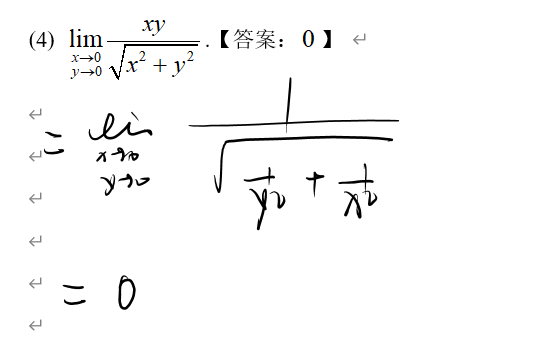 (4) lim x→0 y→0 xy / √(x² + y²) .【答案：0】 ↵
↵
= lim x→0 y→0 1 / √(1/y² + 1/x²)
↵
↵
↵
↵ = 0
↵